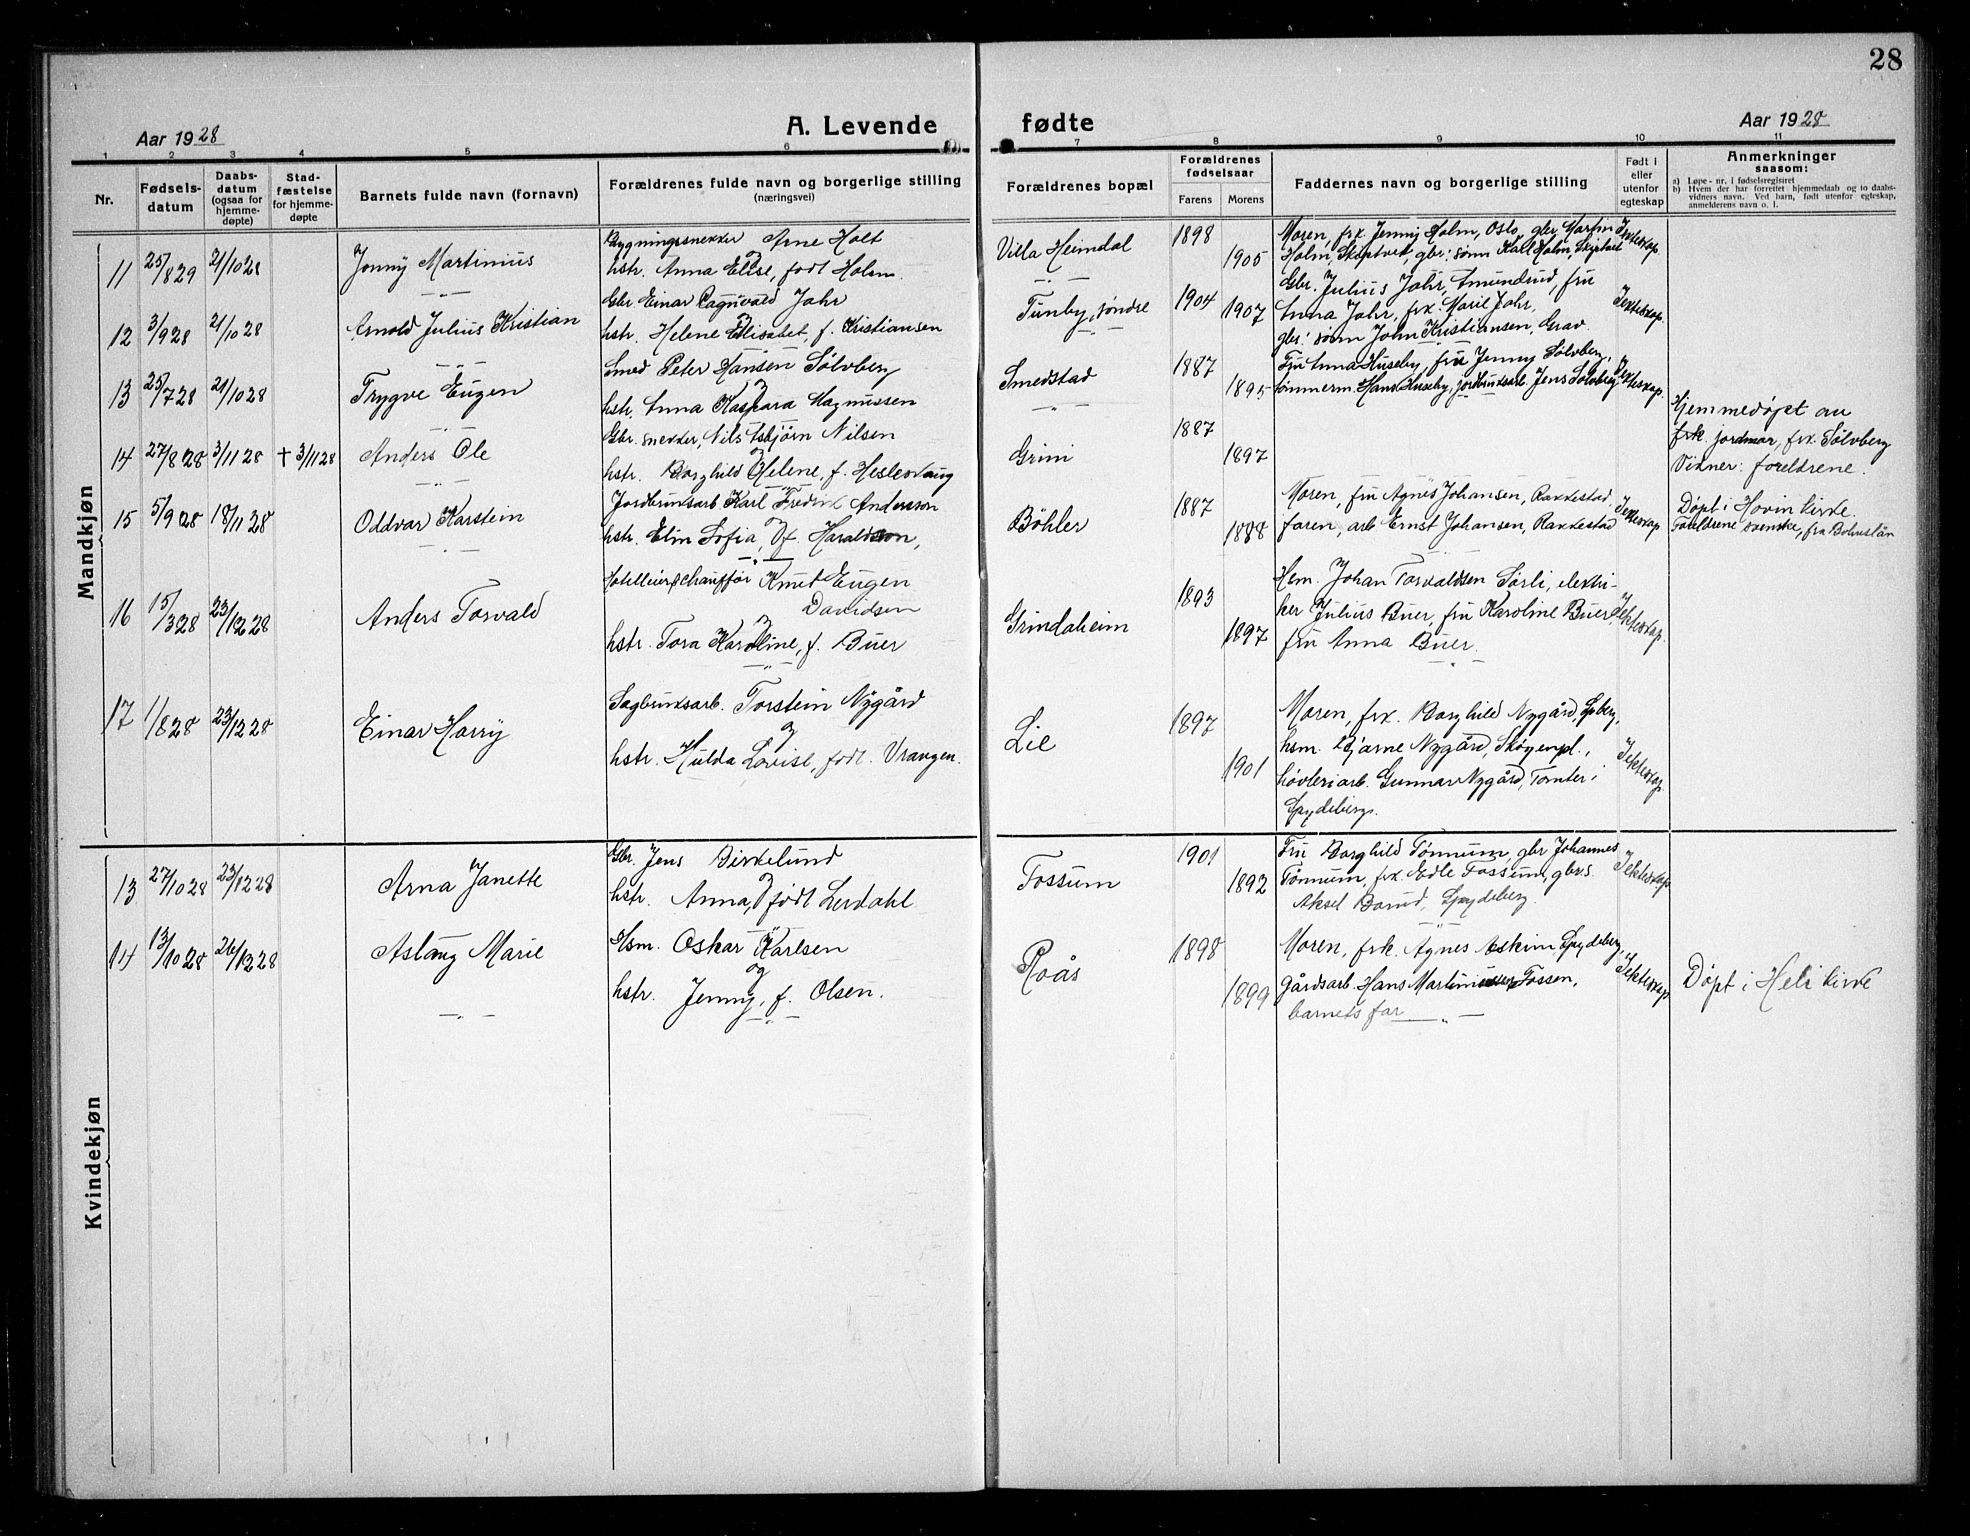 28
Aar 1928 A. Levende fødte Aar 1928
1 2 3 4 5 6 7 8 9 10 11
Nr.
Fødsels-
datum
Daabs-
datum
(ogsaa for
hjemme-
døpte)
Stad-
fæstelse
for hjemme-
døpte
Barnets fulde navn (fornavn)
Forældrenes fulde navn og borgerlige stilling
(næringsvei)
Forældrenes bopæl
Forældrenes
fødselsaar
Farens Morens
Faddernes navn og borgerlige stilling
Født i
eller
utenfor
egteskap
Anmerkninger
saasom:
a) Løpe-nr. i fødselsregistret
b) Hvem der har forrettet hjemmedaab og to daabs-
vidners navn. Ved barn, født utenfor egteskap,
anmelderens navn o. l.
Mandkjøn
11 25/8 29 21/10 28
Jonny Martinius
Bygningssnekker Arne Holt
og
hstr. Anna Elise, født Holm
Villa Heimdal
1898
1905
Moren, frk. Jenny Holm, Oslo, gbr Martin
Holm, Skiptvet, gbr: sønn Karl Holm, Skiptvet
I ekteskap.
12 3/9 28 21/10 28
Arnold Julius Kristian
Gbr Einar Ragnvald Johr
og
hstr. Helene Elisabet, f. Kristiansen
Tunby, søndre
1904
1907
Gbr. Julius Johr, Amundrud, fru
Anna Johr, frk. Marie Johr,
gbr: sønn John Kristiansen, Grav.
I ekteskap.
13 25/7 28 21/10 28
Trygve Eugen
Smed Peter Hansen Sølvberg
og
hstr. Anna Kaspara Magnussen
Smedstad
1887
1895
Fru Anna Huseby, fru Jenny Sølvberg,
tømmerm. Hans Huseby, jordbruksarb. Jens Sølvberg,
I ekteskap.
14 27/8 28 3/11 28 † 3/11 28
Anders Ole
Gbr. snekker, Nils Asbjørn Nilsen
og
hstr. Borghild Helene, f. Heslevaug
Grini
1887
1897
Hjemmedøpt av
frk. jordmor, frk. Sølvberg
Vidner: foreldrene.
15 5/9 28 18/11 28
Oddvar Karstein
Jordbruksarb Karl Fredrik Andersson
og
hstr. Elin Sofia, f. Haraldson,
Böhler
1887
1888
Moren, fru Agnes Johansen, Rakkestad
faren, arb Ernst Johansen, Rakkestad
I ekteskap.
Døpt i Hovin kirke.
Foreldrene svenske, fra Bohuslän
16 15/3 28 23/12 28
Anders Torvald
Hotelleier & chauffør Knut Eugen
Davidsen
og
hstr. Tora Karoline, f. Buer
Grindaheim
1893
1897
Hsm. Johan Torvaldsen Sørli, elektri-
ker Julius Buer, fru Karoline Buer,
fru Anna Buer.
I ekteskap.
17 1/8 28 23/12 28
Einar Harry
Sagbruksarb. Torstein Nygård
og
hstr. Hulda Lovise, født Vrangen.
Lie
1897
1901
Moren, frk. Borghild Nygård, Spberg,
hsm. Bjarne Nygård, Skogenpl.,
høvleriarb. Gunnar Nygård, Tomter i
Spydeberg.
I ekteskap.
Kvindekjøn
13 27/10 28 23/12 28
Arna Janette
Gbr. Jens Birkelund
og
hstr. Anna, født Lerdahl
Fossum
1901
1892
Fru Borghild Tønnum, gbr Johannes
Tønnum, frk. Edle Fossum, gbrs.
Aksel Borud, Spydeberg.
I ekteskap.
14 13/10 28 26/12 28
Aslaug Marie
Hsm. Oskar Karlsen
og
hstr. Jenny, f. Olsen.
Roås
1898
1899
Moren, frk. Agnes Askim, Spydeberg,
gårdsarb. Hans Martinussen Fossen,
barnets far
I ekteskap.
Døpt i Heli kirke